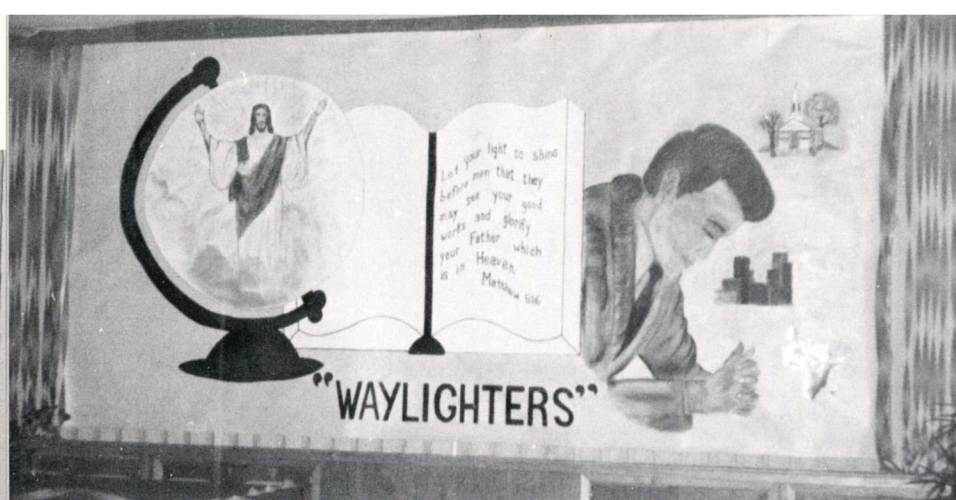 Let your light so shine
before men that they
may see your good
works and glorify
your Father which
is in Heaven.
Matthew 5:16
"WAYLIGHTERS"